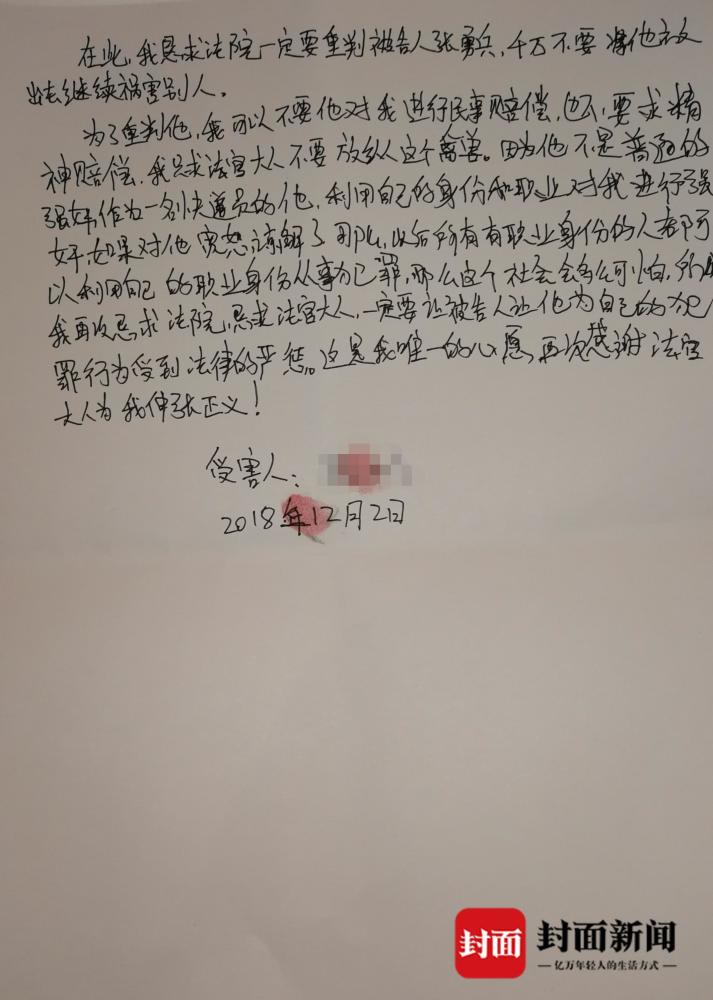 在此，我恳求法院一定要重判被告人张勇兵，千万不要将他放
出去继续祸害别人。
为了重判他，我可以不要他对我进行民事赔偿，也不要求精
神赔偿，我只求法官大人不要放纵这个禽兽。因为他不是普通的
强奸作为一名快递员的他，利用自己的身份和职业对我进行强
奸如果对他宽恕谅解了那么，以后所有有职业身份的人都可
以利用自己的职业身份从事犯罪，那么这个社会会多么可怕，所以
我再次恳求法院，恳求法官大人，一定要让被告人让他为自己的犯
罪行为受到法律的严惩。这是我唯一的心愿，再次感谢法官
大人为我伸张正义！
受害人：
2018年12月2日
封面 封面新闻
亿万年轻人的生活方式